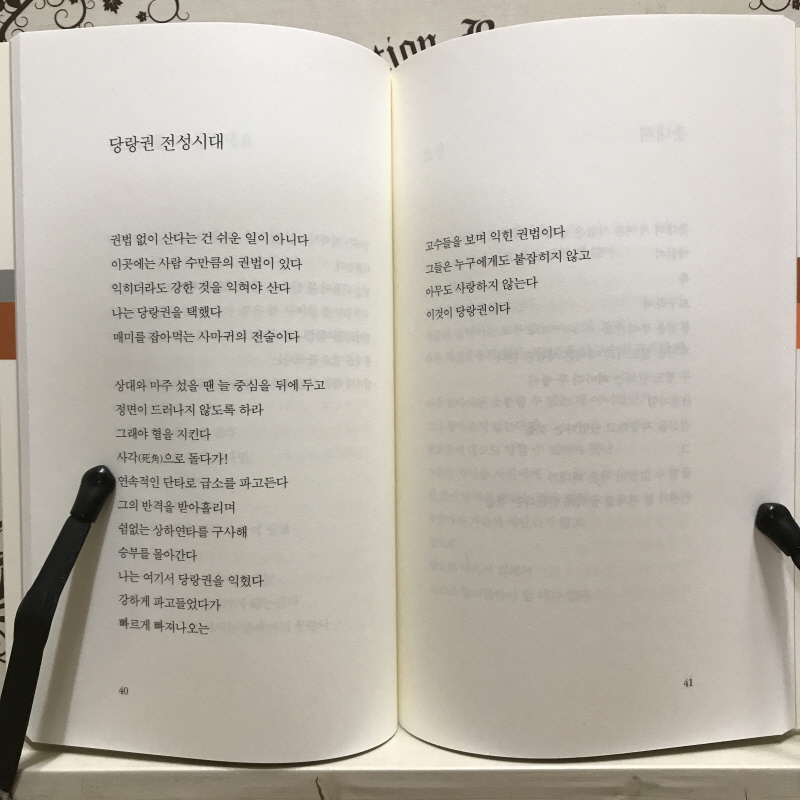 tion
당랑권 전성시대
권법 없이 산다는 건 쉬운 일이 아니다
이곳에는 사람 수만큼의 권법이 있다
익히더라도 강한 것을 익혀야 산다
나는 당랑권을 택했다
매미를 잡아먹는 사마귀의 전술이다
상대와 마주 섰을 땐 늘 중심을 뒤에 두고
정면이 드러나지 않도록 하라
그래야 혈을 지킨다
사각(死角)으로 돌다가!
연속적인 단타로 급소를 파고든다
그의 반격을 받아흘리며
쉼없는 상하연타를 구사해
승부를 몰아간다
나는 여기서 당랑권을 익혔다
강하게 파고들었다가
빠르게 빠져나오는
40
고수들을 보며 익힌 권법이다
그들은 누구에게도 붙잡히지 않고
아무도 사랑하지 않는다
이것이 당랑권이다
41